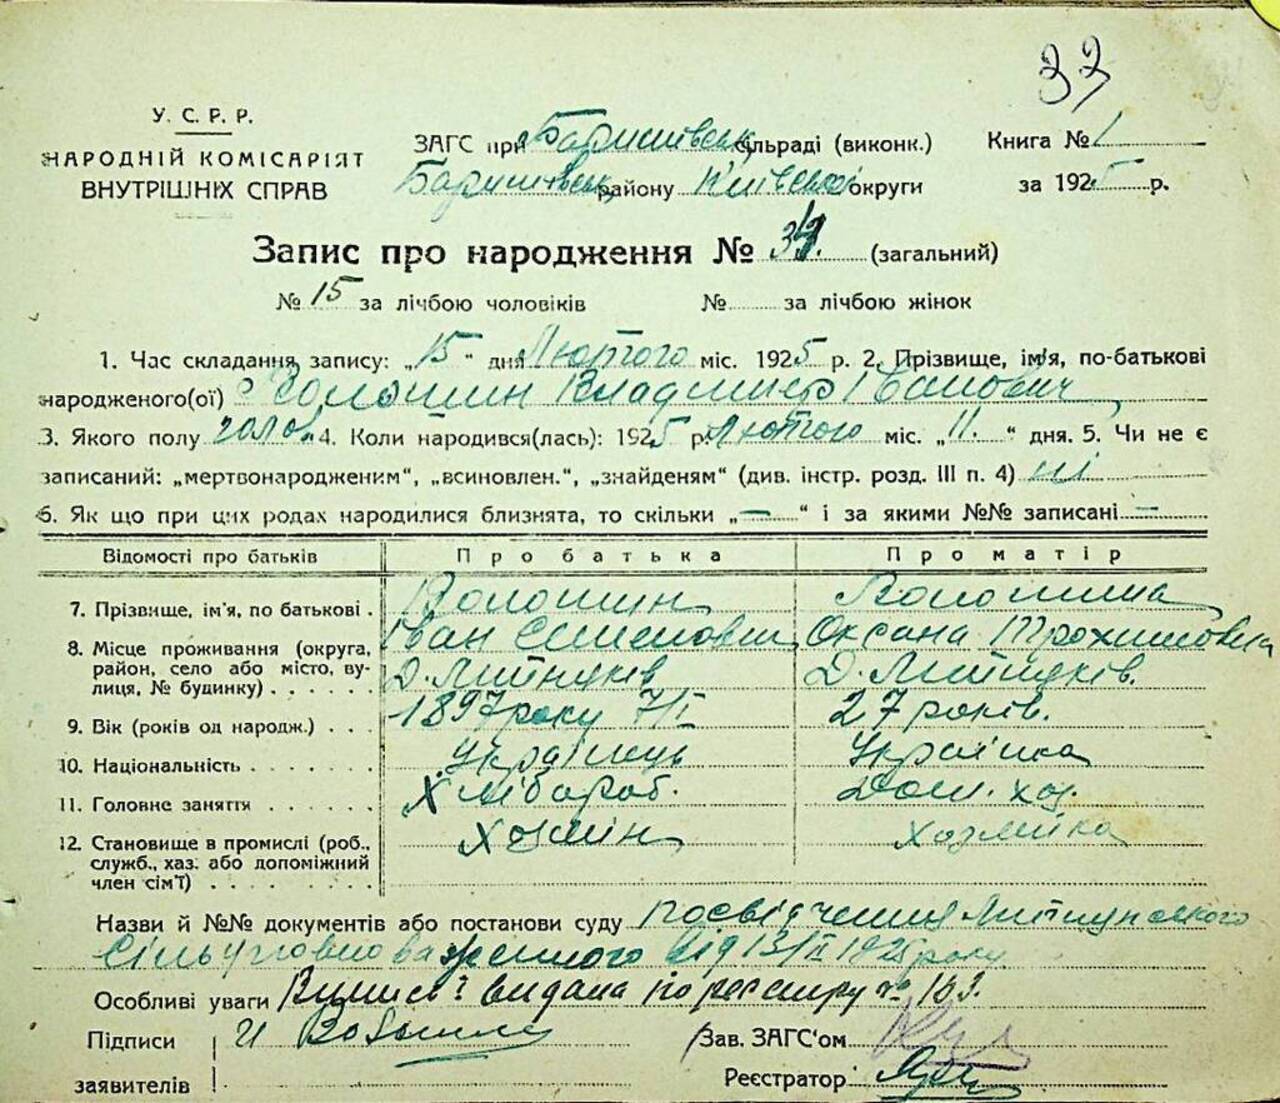 32
У. С. Р. Р.
НАРОДНІЙ КОМІСАРІЯТ
ВНУТРІШНІХ СПРАВ
ЗАГС при Баришівськ сільраді (виконк.)
Баришівськ району Київської округи
Книга № 1
за 1925 р.
Запис про народження № (загальний)
№ 15 за лічбою чоловіків № за лічбою жінок
1. Час складання запису: „15“ дня Лютого міс. 1925 р. 2. Прізвище, ім'я, по-батькові
народженого(ої) Волошин Владимир Іванович
3. Якого полу чолов. 4. Коли народився(лась): 1925 р. Лютого міс. „11.“ дня. 5. Чи не є
записаний: „мертвонародженим“, „всиновлен.“, „знайденям“ (див. інстр. розд. III п. 4) ні
6. Як що при цих родах народилися близнята, то скільки „—“ і за якими №№ записані —
Відомості про батьків Про батька Про матір
7. Прізвище, ім'я, по батькові . Волошин Волошина
Іван Семенович Оксана Трохимовна
8. Місце проживання (округа, район, село або місто, вулиця, № будинку) . . . . . . Д. Лит Д. Лит
9. Вік (років од народж.) . . . 1897 року 7/I 27 років.
10. Національність . . . . . . . Українець Українка
11. Головне заняття . . . . . . Хлібороб. Дом. хоз.
12. Становище в промислі (роб., служб., хаз. або допоміжний член сім'ї) . . . . . . . . Хозяїн хозяйка
Назви й №№ документів або постанови суду посвідчення
Сільуповноваженного від 13/II 1925 року
Особливі уваги Випись видана по реєстру № 163.
Підписи
заявителів
И
Зав. ЗАГС'ом
Реєстратор